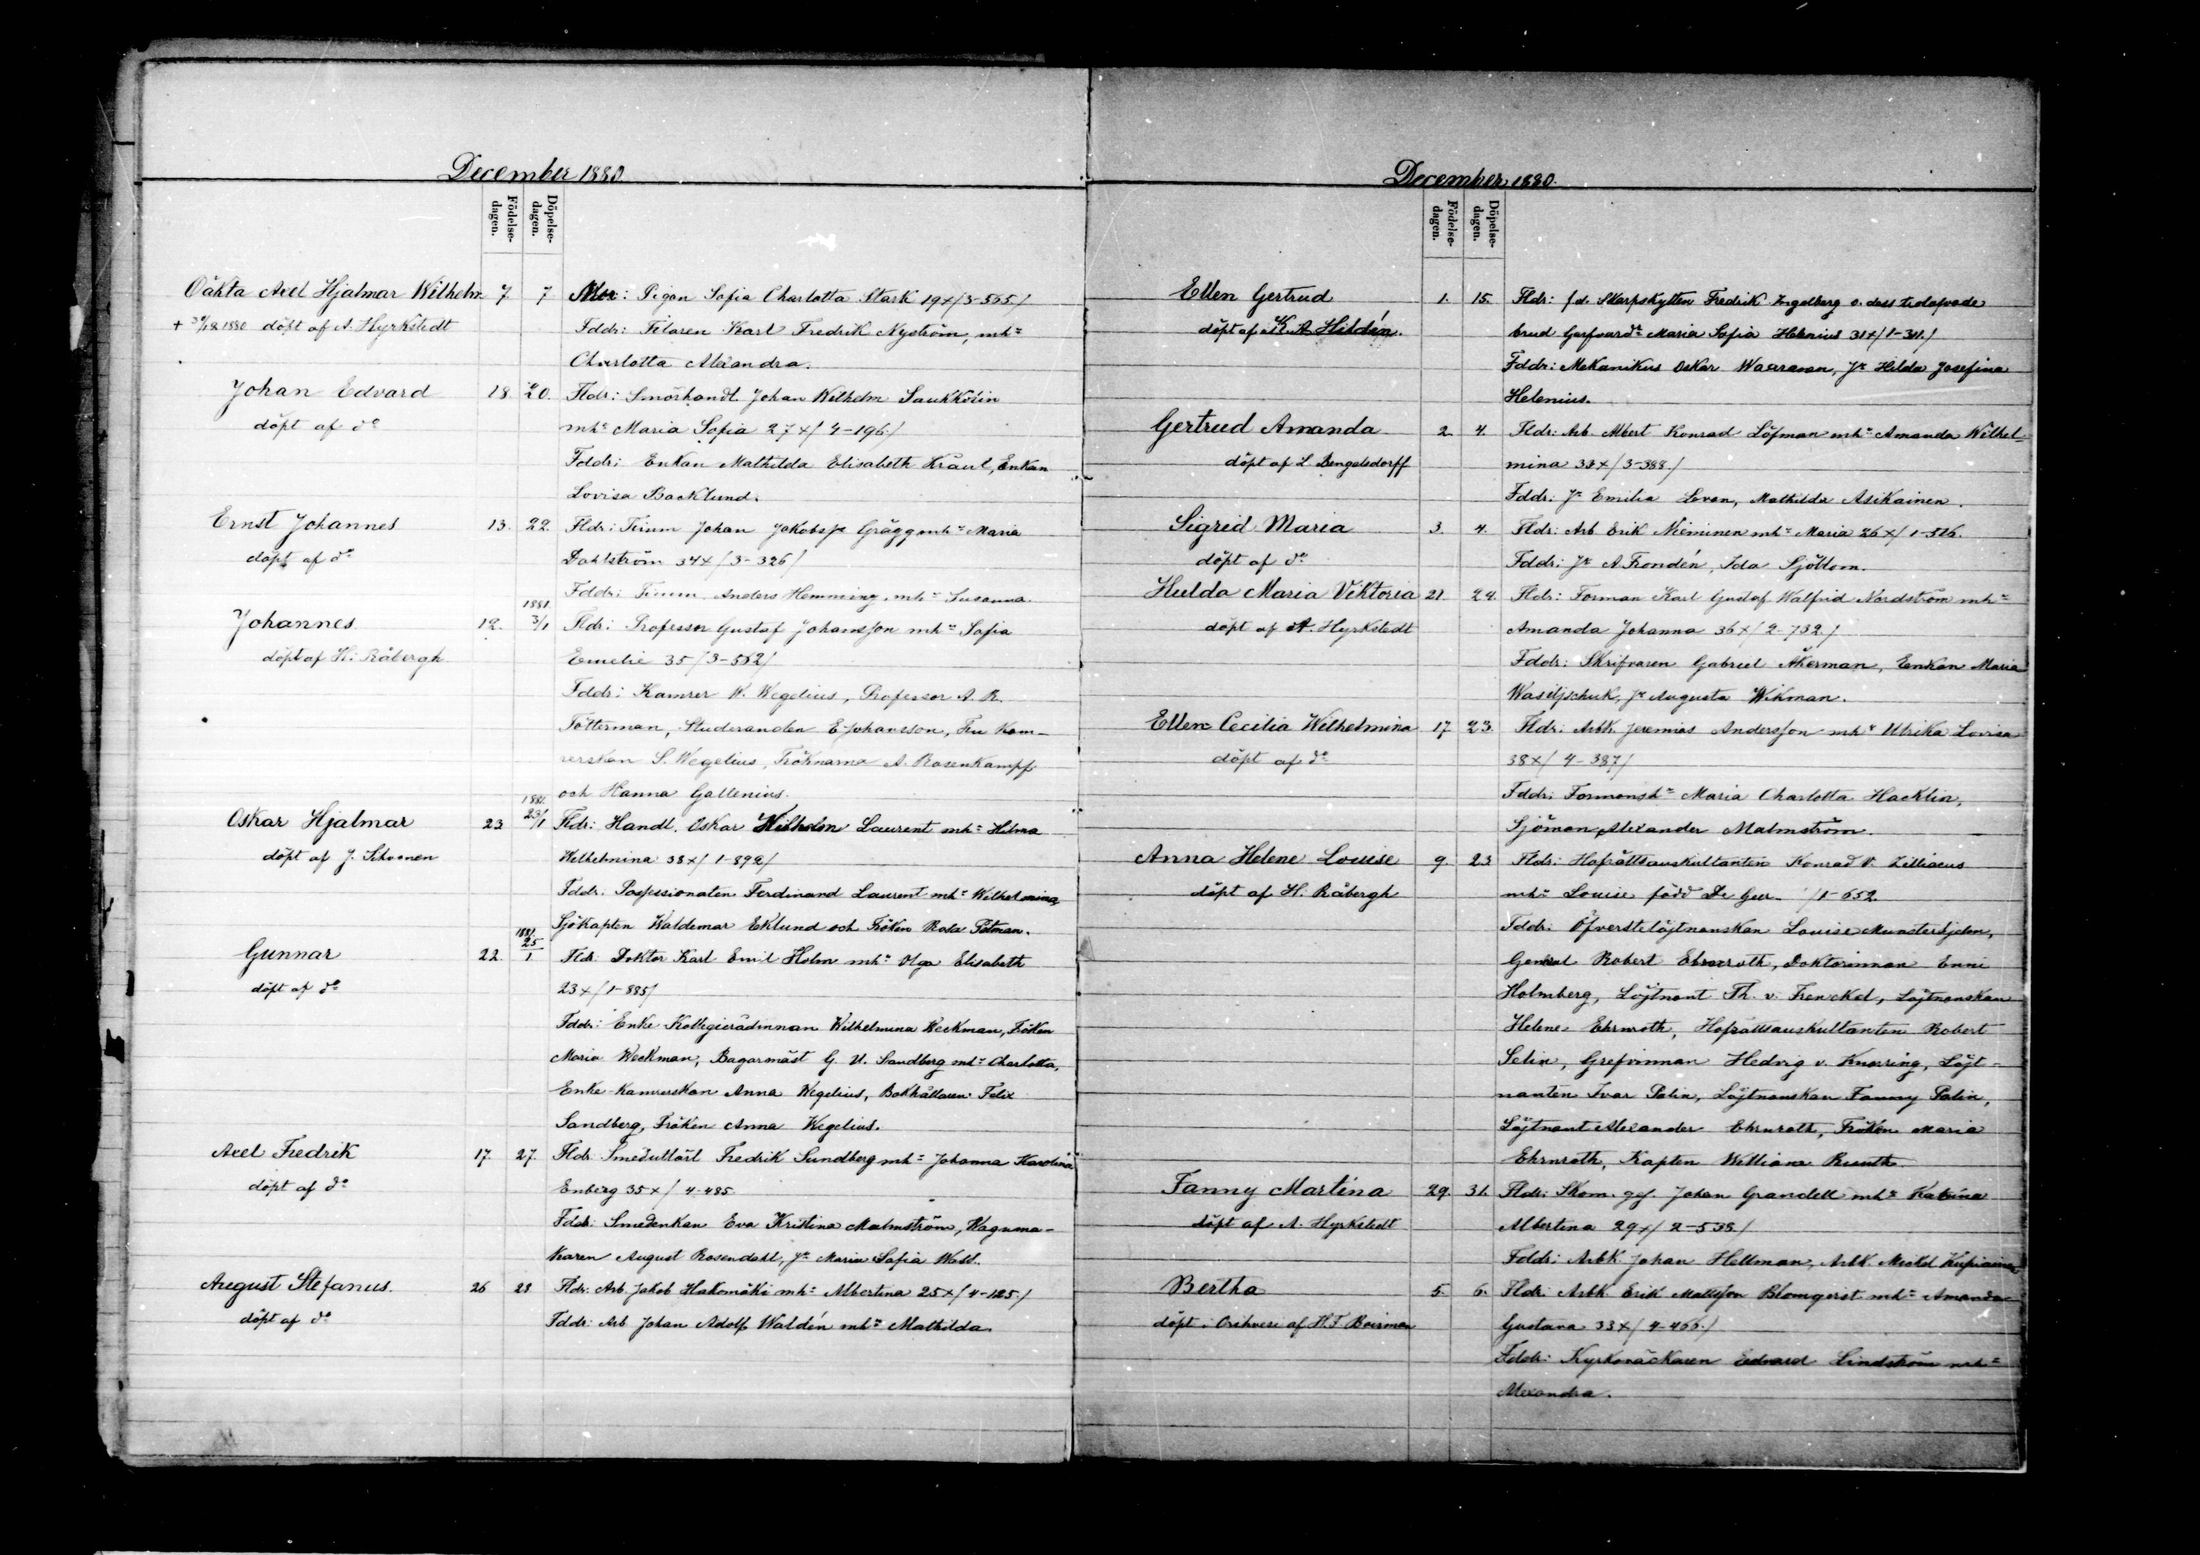 December 1880.
Födelse-
dagen.
Döpelse-
dagen.
Oäkta Axel Hjalmar Wilhelm 7 7 Mor: Pigan Sofia Charlotta Stark 19x/3-565/
döpt af A. Hyrkstedt Fddr: Filaren Karl Fredrik Nyström, mh:
Charlotta Alexandra.
Johan Edvard 18. 20. Fldr: Smörhandl. Johan Wilhelm
döpt af do mh: Maria Sofia 27x/4-196./
Fddr: Enkan Mathilda Elisabeth Enkan
Lovisa Backlund.
Ernst Johannes 13. 22. Fldr: Timm Johan Jakobss. Grägg mh: Maria
döpt af do Dahlström 34x/3-326/
Fddr: Timm. Anders Hemming, mh: Susanna.
Johannes 12. 1881. 3/1 Fldr: Professor Gustaf Johansson mh: Sofia
döpt af H: Råbergh Emelie 35/3-562/
Fddr: Kamrer W. Wegelius, Professor A. R.
Tötterman, Studeranden E Johansson, Fru Kam-
rerskan S. Wegelius, Fröknarna A. Rosenkampf
och Hanna Gallenius.
Oskar Hjalmar 23. 1881. 23/1 Fldr: Handl. Oskar Wilhelm Laurent mh: Hilma
döpt af J. Sihvonen Wilhelmina 38x/1-892/
Fddr: Possessionaten Ferdinand Laurent mh: Wilhelmina,
Sjökapten Waldemar Eklund och Fröken Rosa
Gunnar 22. 1881. 25/1 Fldr: Doktor Karl Emil Holm mh: Olga Elisabeth
döpt af do 23x/1-885/
Fddr: Enke Kollegierådinnan Wilhelmina Weckman, Fröken
Maria Weckman, Bagarmäst G. U. Sandberg mh: Charlotta,
Enke-kamrerskan Anna Wegelius, Bokhållaren Felix
Sandberg, Fröken Anna Wegelius.
Axel Fredrik 17. 27. Fldr: Smedutlärl Fredrik Sundberg mh: Johanna Karolina
döpt af do Enberg 35x/4-485.
Fddr: Smedenkan Eva Kristina Malmström, Wagnma-
karen August Rosendahl, Jn Maria Sofia
August Stefanus. 26 28 Fldr: Arb. Jakob Hakomäki mh: Albertina 25x/4-125./
döpt af do Fddr: Arb Johan Adolf Waldén mh: Mathilda.
December 1880.
Födelse-
dagen.
Döpelse-
dagen.
Ellen Gertrud 1. 15. Fldr: f.d. Skarpskytten Fredrik Engelberg o. dess trolofvade
döpt af K. A. Hildén. brud Maria Sofia Helenius 31x/1-311./
Fddr: Mekanikus Oskar Waaranen, Jn Hilda Josefina
Helenius.
Gertrud Amanda 2. 4. Fldr: Arb. Albert Konrad Löfman mh: Amanda Wilhel-
döpt af L Bengelsdorff mina 33x/3-388./
Fddr: Jn Emilia Mathilda Asikainen.
Sigrid Maria 3. 4. Fldr: Arb Erik Nieminen mh: Maria 26x/1-516.
döpt af do Fddr: Jn A. Frondén, Ida Sjöblom.
Hulda Maria Viktoria 21. 24. Fldr: Forman Karl Gustaf Walfrid Nordström mh:
döpt af A. Hyrkstedt Amanda Johanna 36x/2-732/
Fddr: Skrifvaren Gabriel Åkerman, Enkan Maria
Wasiljschuk, Jn Augusta Wikman.
Ellen Cecilia Wilhelmina 17 23. Fldr: Arbk. Jeremias Andersson mh: Ulrika Lovisa
döpt af do 38x/4-387/
Fddr: Formansh: Maria Charlotta Hacklin,
Sjöman Alexander Malmström.
Anna Helene Louise 9. 23 Fldr: Hofrättsauskultanten Konrad V. Zilliacus
döpt af H: Råbergh mh: Louise född De Geer /1-652
Fddr: Öfverstelöjtnanskan Louise Munsterhjelm,
General Robert Ehrnrooth, Doktorinnan Enni
Holmberg, Löjtnant Th. v. Frenckel, Löjtnanskan
Helene Ehrnroth, Hofrättsauskultanten Robert
Selin, Grefvinnan Hedvig v. Knorring, Löjt-
nanten Ivar Palin, Löjtnanskan Fanny Palin,
Löjtnant Alexander Ehrnroth, Fröken Maria
Ehrnroth, Kapten William Ruuth.
Fanny Martina 29. 31. Fldr: Skom. ges. Johan Grandell mh: Katrina
döpt af A. Hyrkstedt Albertina 29x/2-538/
Fddr: Arbk Johan Hellman, Arbk. Mickel
Bertha 5. 6. Fldr: Arbk Erik Mattsson Blomqvist mh: Amanda
döpt i Orihvesi af H. T Gustava 33x/4-466./
Fddr: Kyrkoväckaren Edvard Lindström mh:
Alexandra.